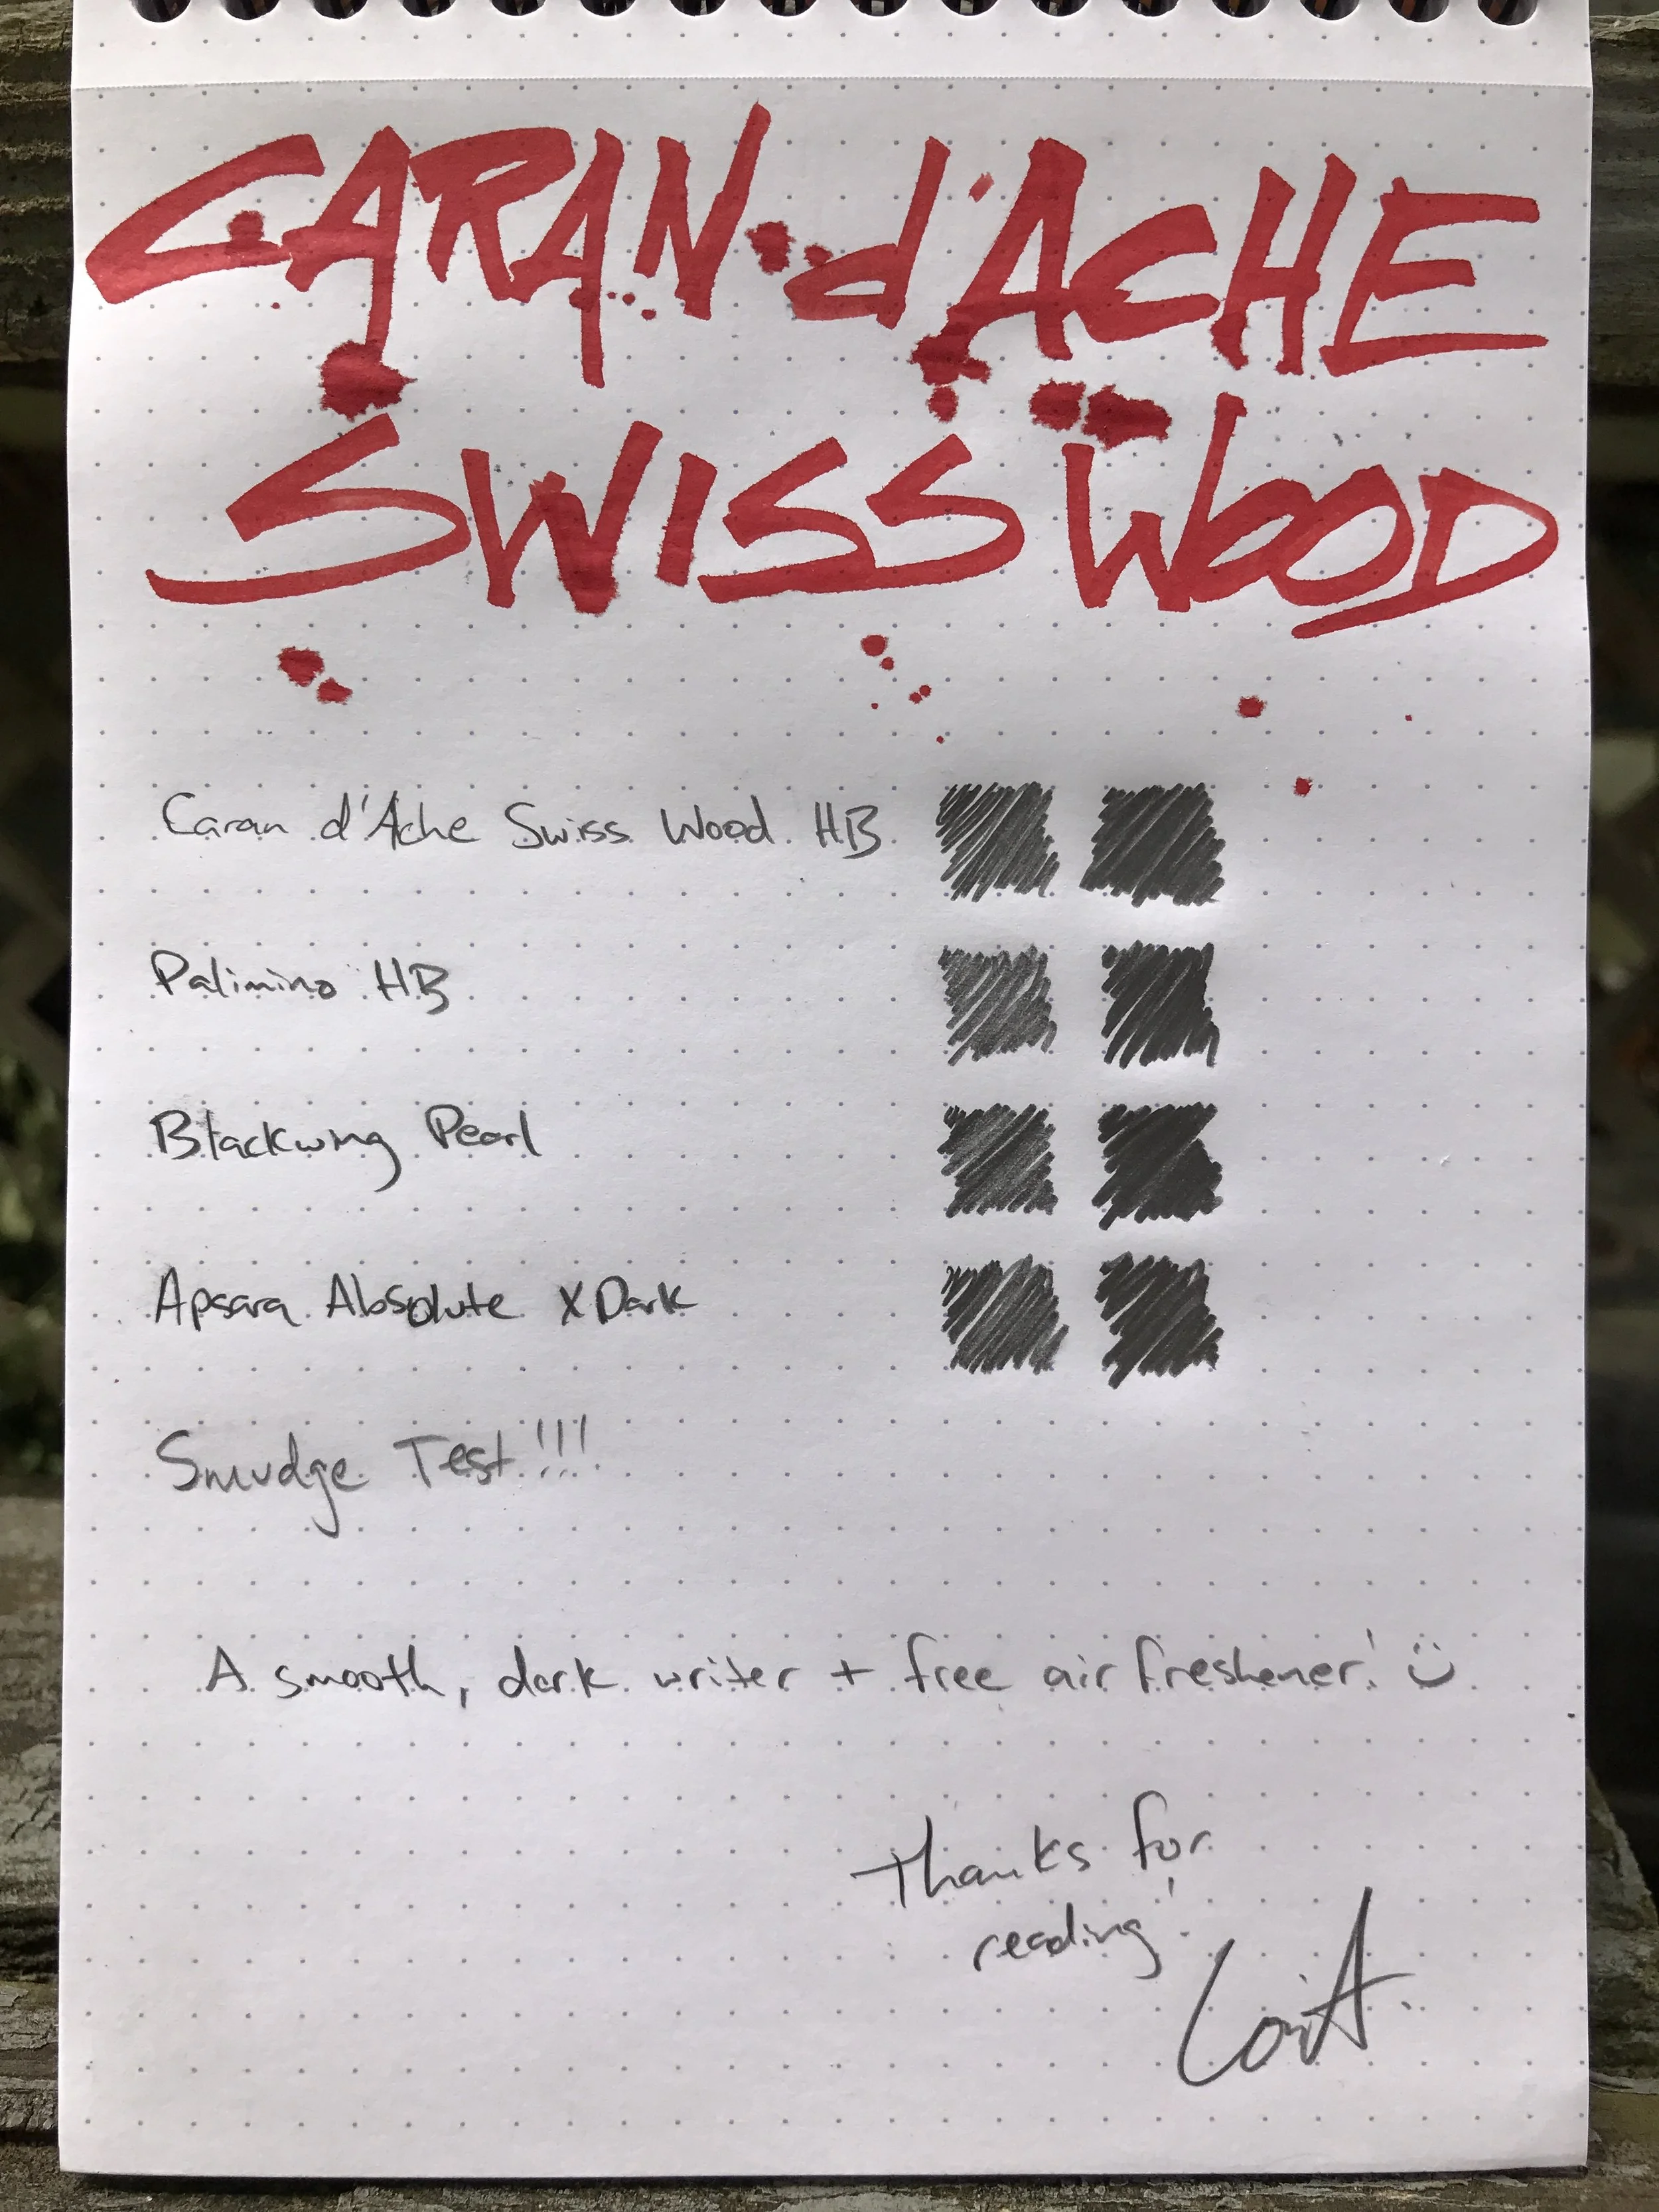 CARAN d'ACHE
SWISS WOOD
Caran d'Ache Swiss Wood HB
Palimino HB
Blackwing Pearl
Apsara Absolute XDark
Smudge Test!!!
A smooth, dark writer + free air freshener! :)
Thanks for
reading!